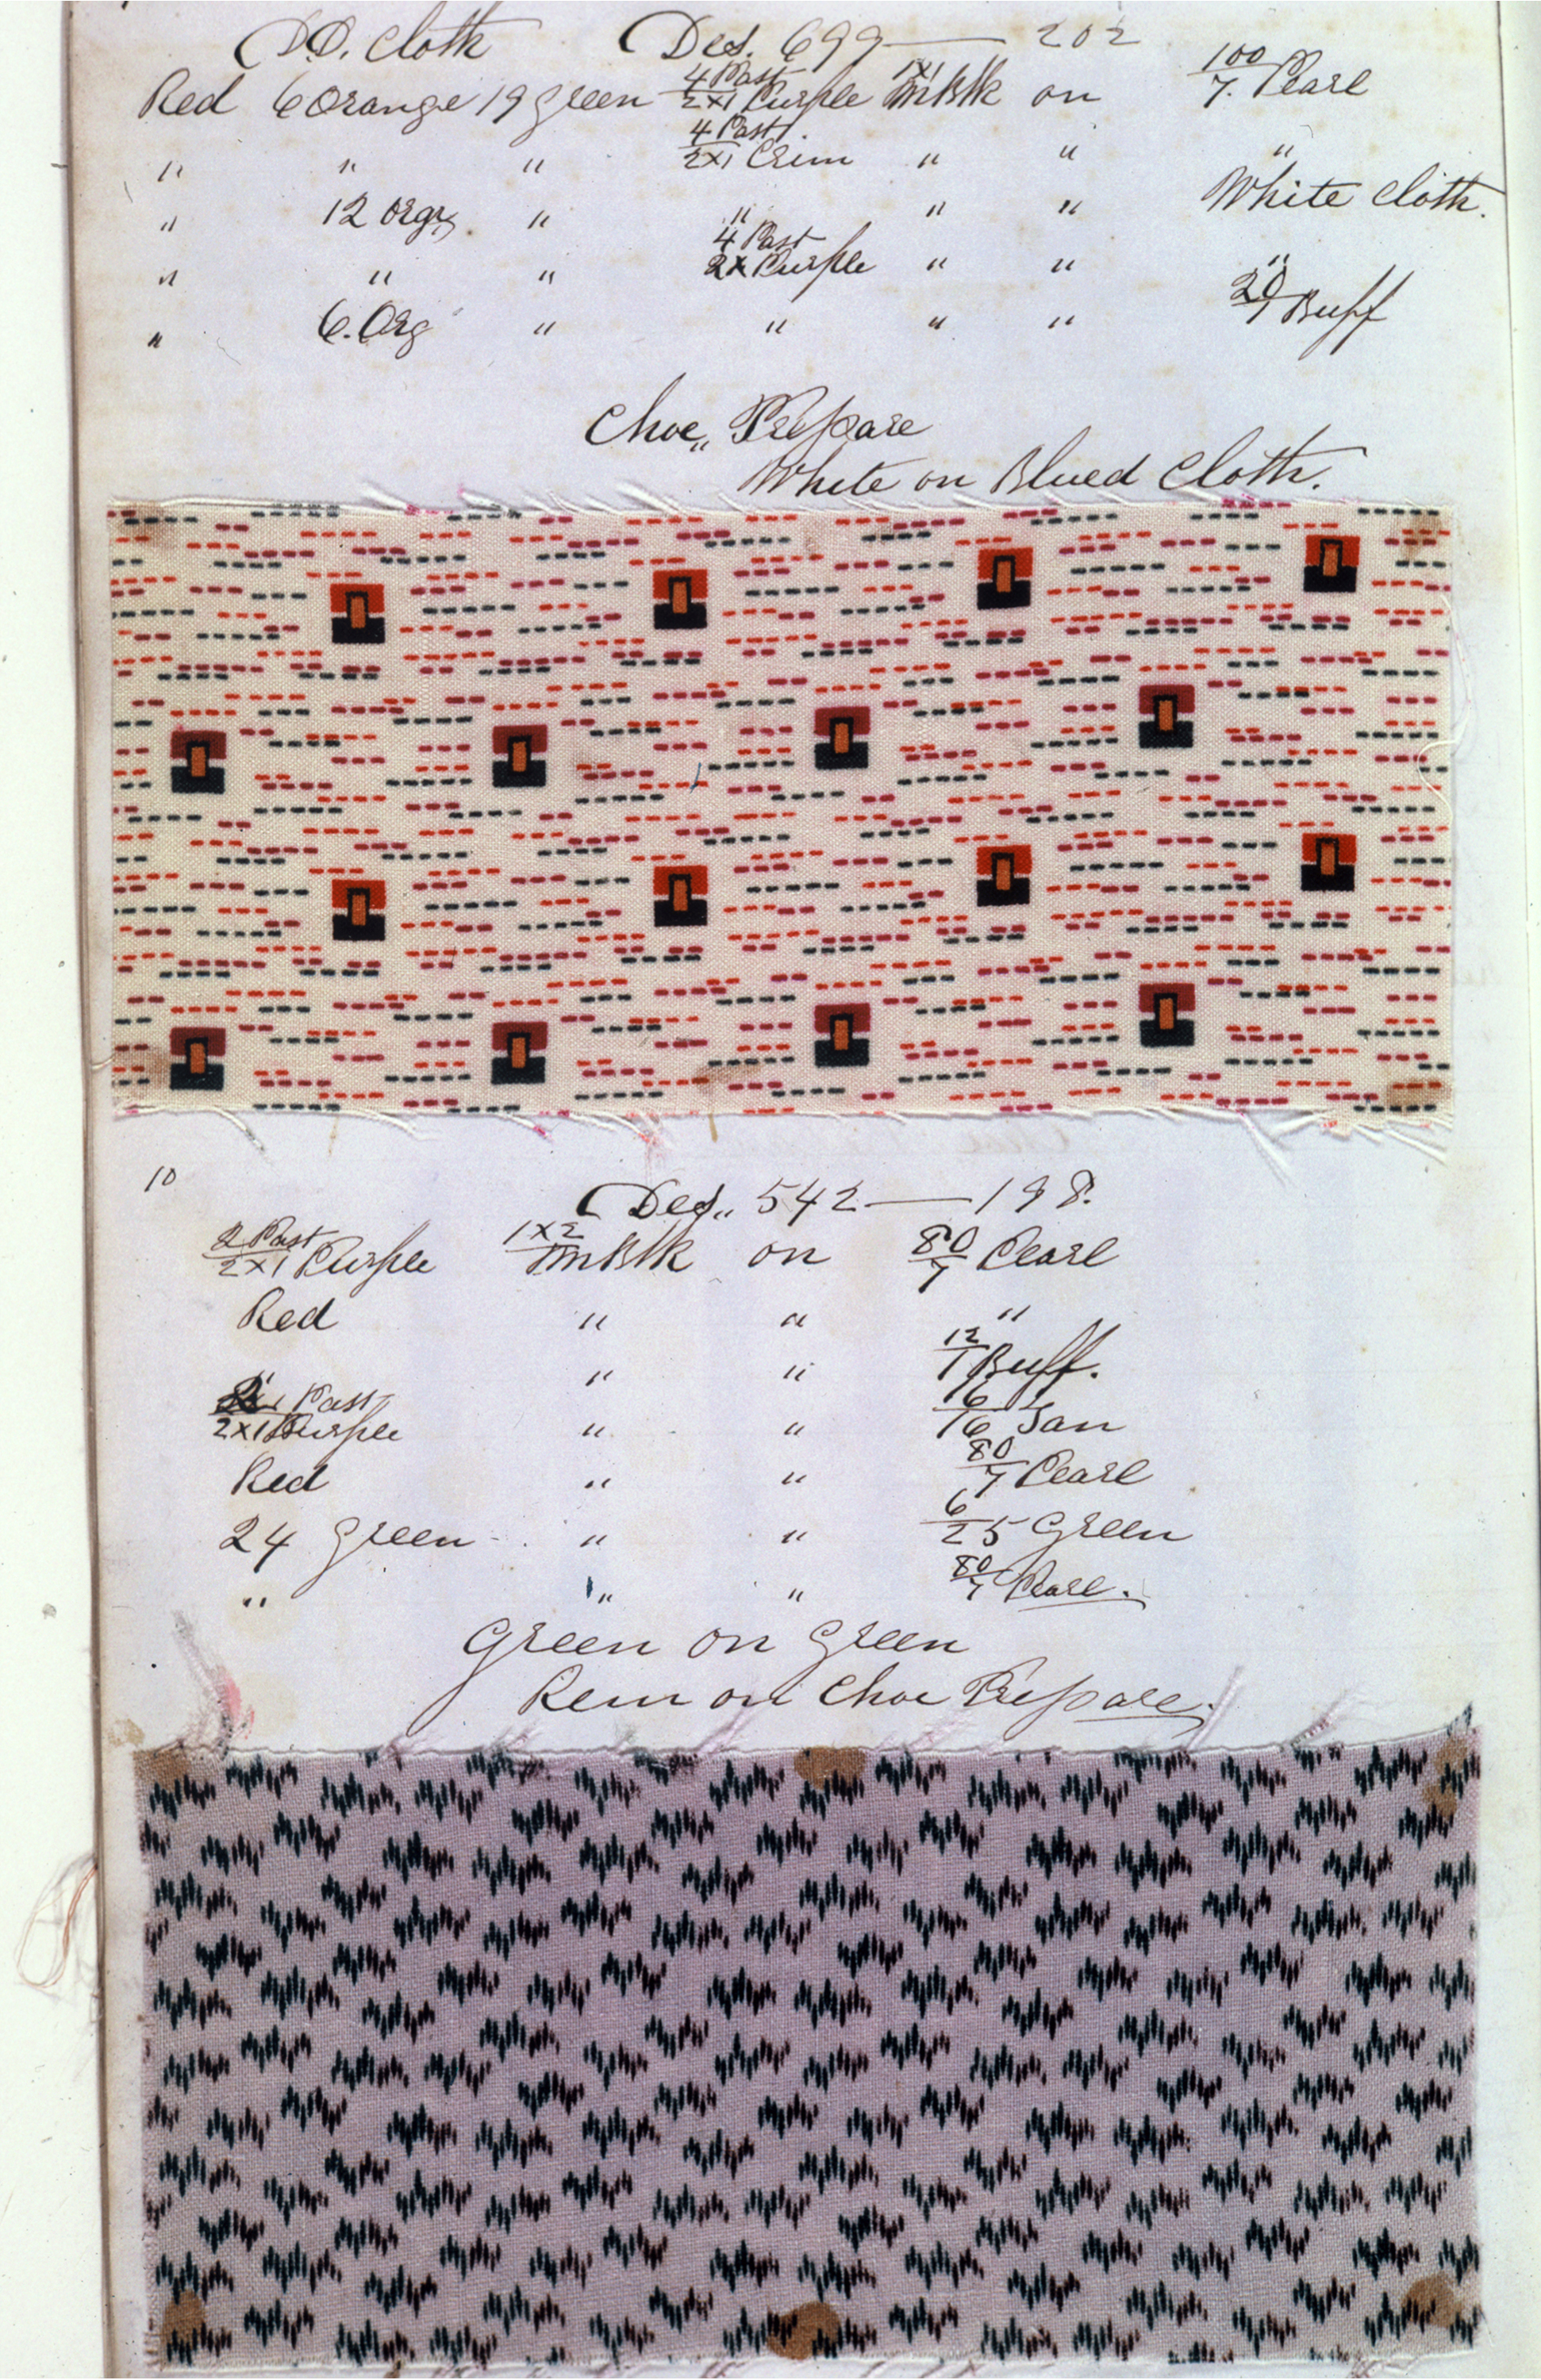 DO. Cloth Des. 699 — 202
Red 6 Orange 19 Green 4 Past/2x1 Purple 1x1/M Blk on 100/7. Pearl
" " " 4 Past/2x1 Crim " " "
" 12 Orge " " " " White Cloth.
" " " 4 Past/2x Purple " " "
" 6. Org " " " " 20/1 Buff
Choc" Prepare
White on Blued Cloth.
10
Des" 542 — 198.
2 Past/2x1 Purple 1x2/M Blk on 80/7 Pearl
Red " " "
" " " 12/1 Buff.
Past/2x1 Purple " " 16/16 Tan
Red " " 80/7 Pearl
24 Green " " 6/25 Green
" " " 80/7 Pearl.
Green on Green
Rem on Choc Prepare.